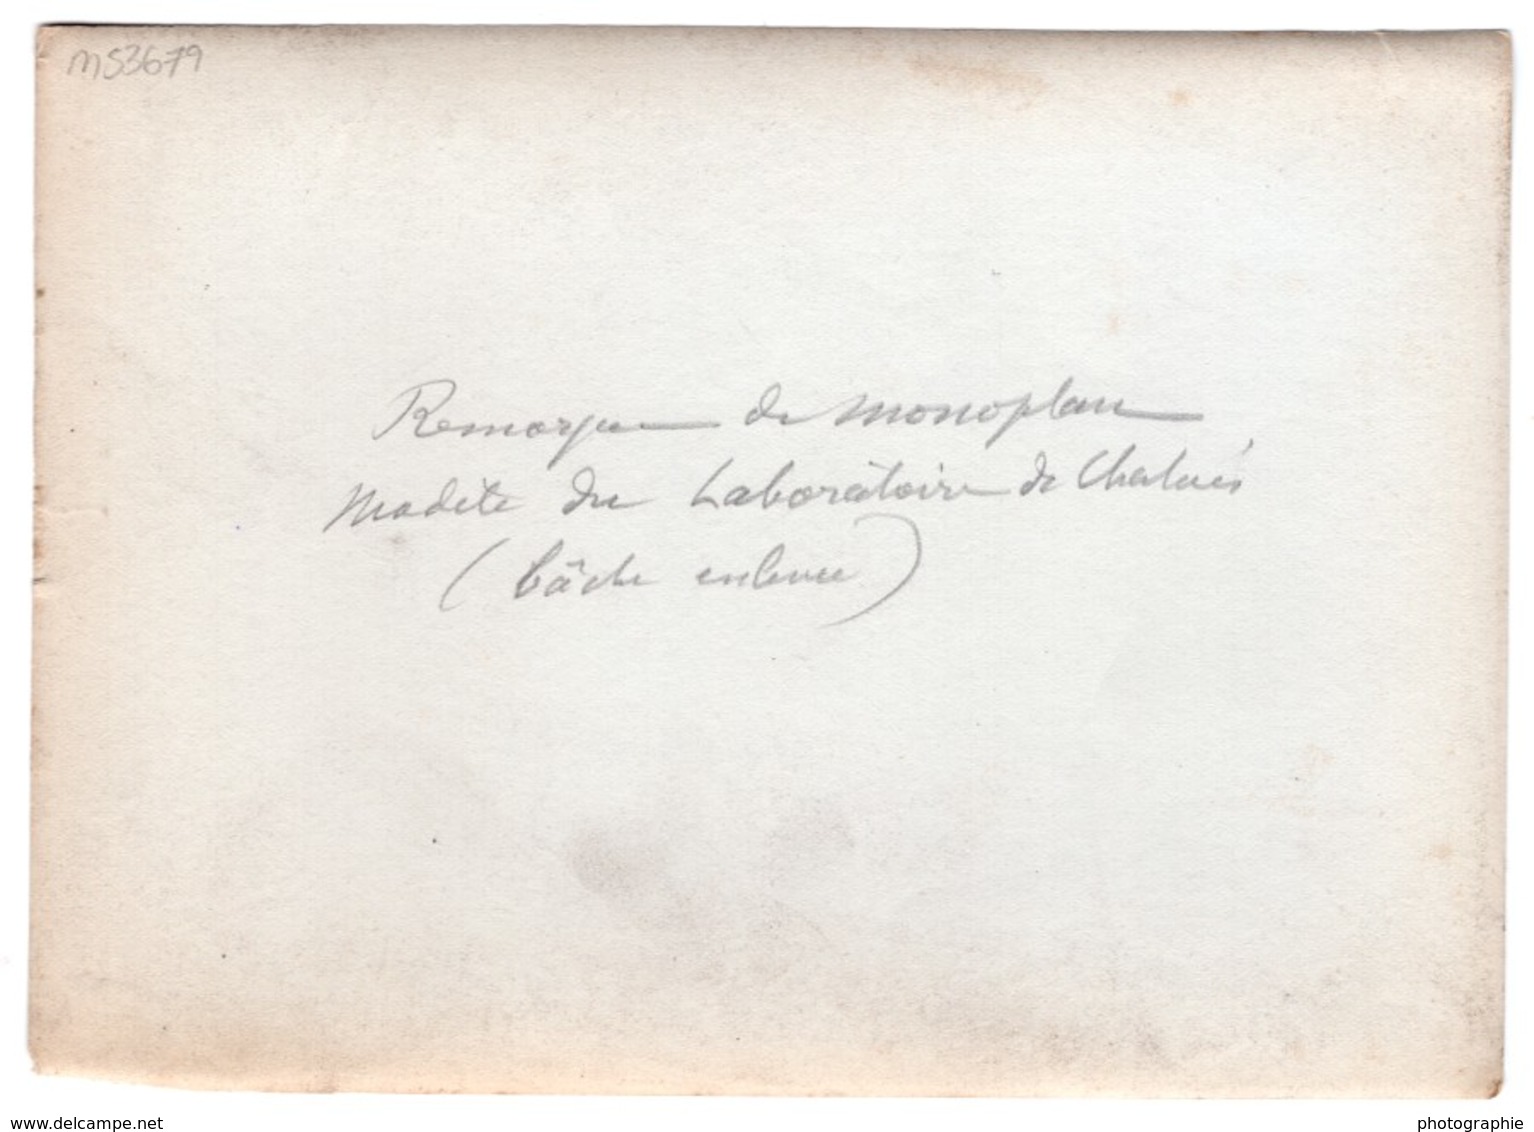 MS3679
Remorque de monoplan
Modèle du Laboratoire de Chalais
(bâche enlevée)
www.delcampe.net
photographie